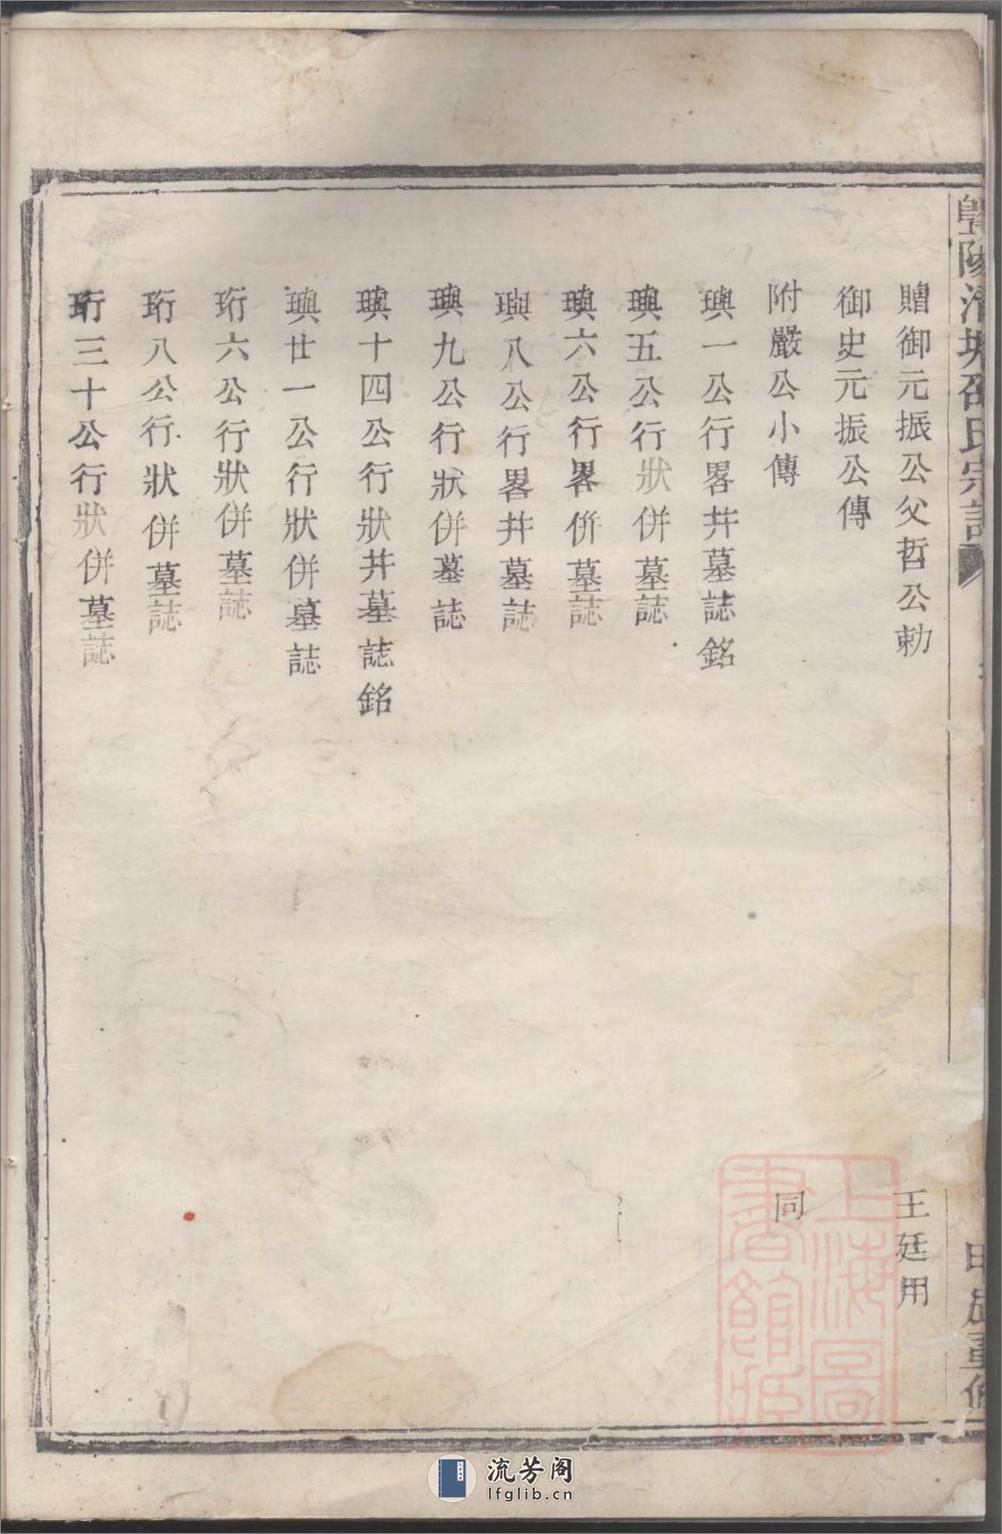 暨陽清塘邵氏宗譜
贈御元振公父哲公勅
王廷用
御史元振公傳
附嚴公小傳
同
璵一公行畧并墓誌銘
璵五公行狀併墓誌
璵六公行畧併墓誌
璵八公行畧并墓誌
璵九公行狀併墓誌
璵十四公行狀并墓誌銘
璵廿一公行狀併墓誌
珩六公行狀併墓誌
珩八公行狀併墓誌
珩三十公行狀併墓誌
上海圖書館藏
流芳阁
lfglib.cn